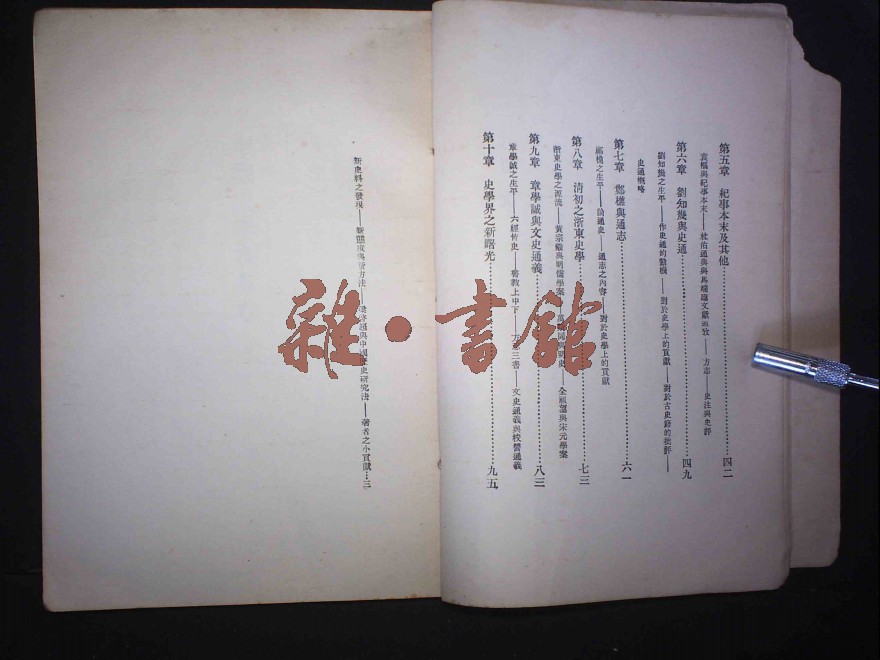 第五章 紀事本末及其他……四二
袁樞與紀事本末——杜佑通典與馬端臨文獻通攷——方志——史注與史評
第六章 劉知幾與史通……四九
劉知幾之生平——作史通的動機——對於史學上的貢獻——對於古史籍的批評——
史通概略
第七章 鄭樵與通志……六一
鄭樵之生平——論通史——通志之內容——對於史學上的貢獻
第八章 清初之浙東史學……七三
浙東史學之源流——黃宗羲與明儒學案——與明史——全祖望與宋元學案
第九章 章學誠與文史通義……八三
章學誠之生平——六經皆史——書教上中下——方志三書——文史通義與校讐通義
第十章 史學界之新曙光……九五
新史料之發現——新態度與新方法——梁啓超與中國歷史研究法——著者之小貢獻…三
雜·書館